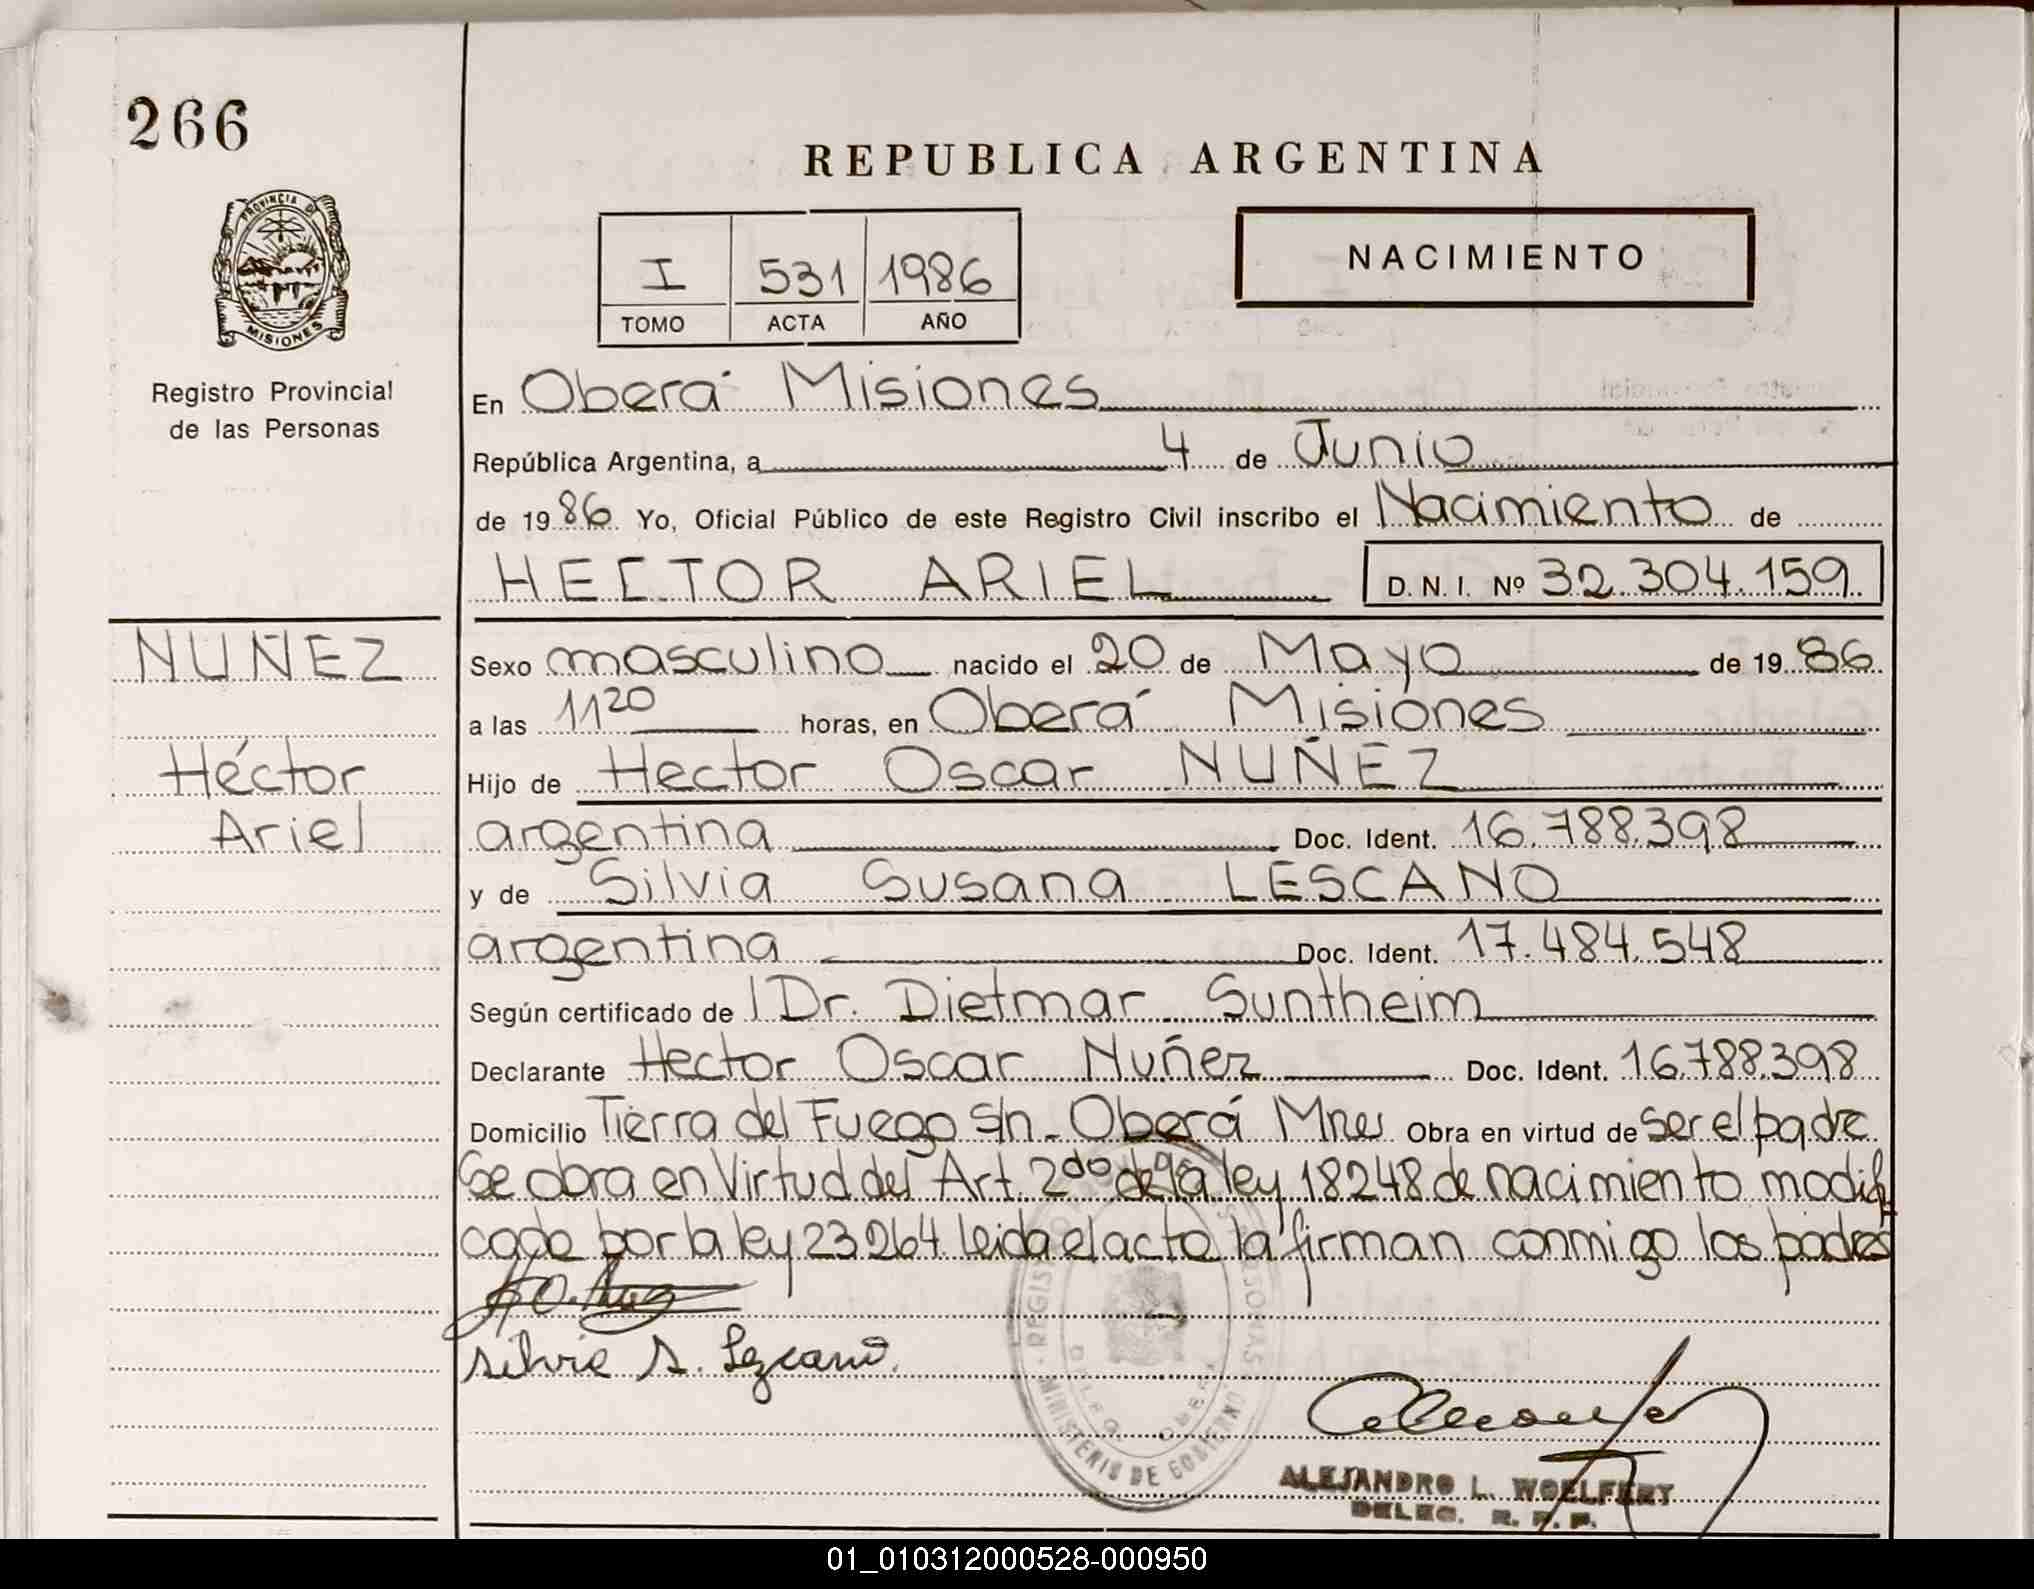 266
REPUBLICA ARGENTINA
PROVINCIA DE
MISIONES
I 531 1986
TOMO ACTA AÑO
NACIMIENTO
Registro Provincial
de las Personas
En Oberá Misiones
República Argentina, a 4 de Junio
de 1986 Yo, Oficial Público de este Registro Civil inscribo el Nacimiento de
HECTOR ARIEL D. N. I. Nº 32.304.159
NUÑEZ
Héctor
Ariel
Sexo masculino nacido el 20 de Mayo de 1986
a las 11 20 horas, en Oberá Misiones
Hijo de Hector Oscar NUÑEZ
argentina Doc. Ident. 16.788.398
y de Silvia Susana LESCANO
argentina Doc. Ident. 17.484.548
Según certificado de Dr. Dietmar Suntheim
Declarante Hector Oscar Nuñez Doc. Ident. 16.788.398
Domicilio Tierra del Fuego s/n - Oberá Mnes Obra en virtud de ser el padre
Se obra en Virtud del Art. 2do de la ley 18248 de nacimiento modifi
cado por la ley 23264 leida el acto la firman conmigo los padres
Silvia S. Lezcano.
MINISTERIO DE GOBIERNO
ALEJANDRO L. WOELFERT
DELEG. R. P. P.
01_010312000528-000950